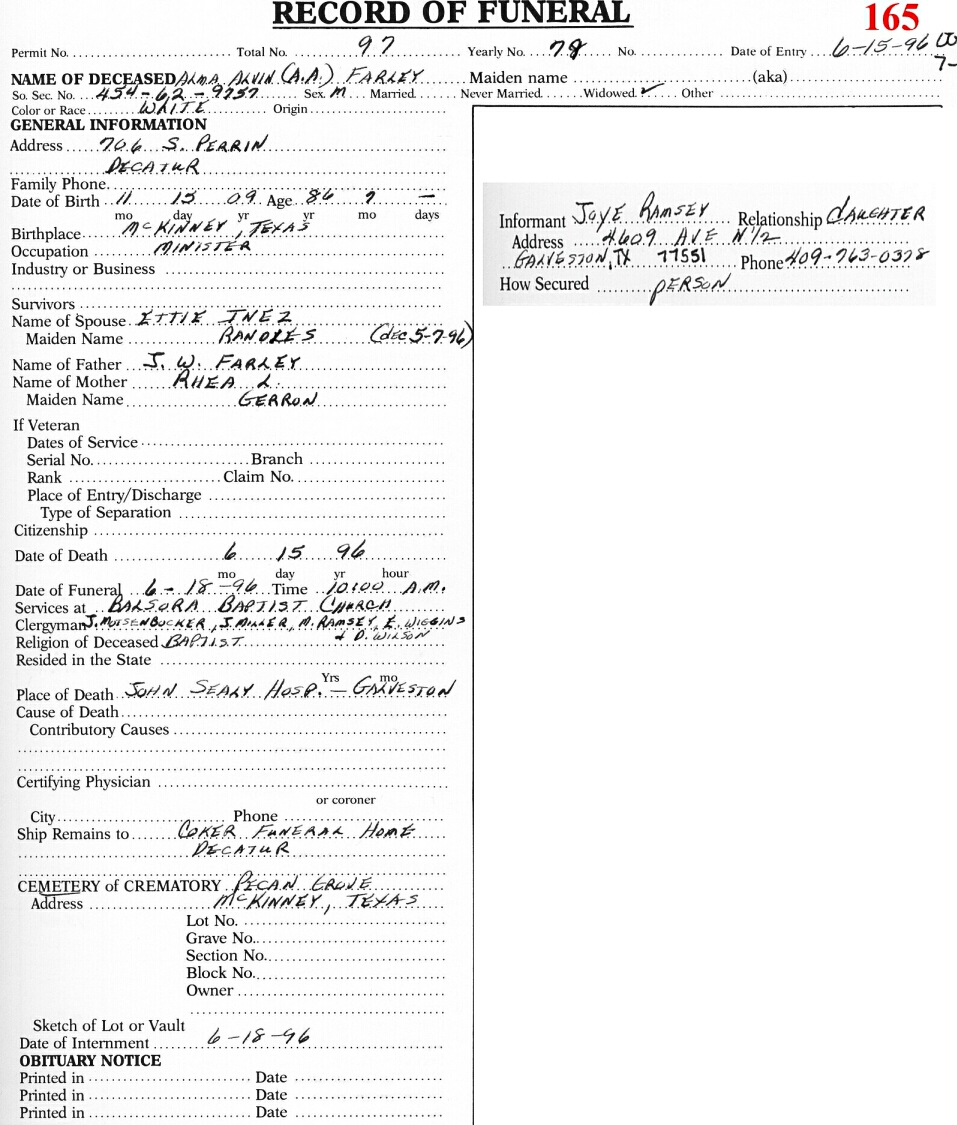 RECORD OF FUNERAL
165
Permit No. Total No. 97 Yearly No. 78 No. Date of Entry 6-15-96
7-
NAME OF DECEASED ALMA ALVIN (A.A.) FARLEY Maiden name (aka)
So. Sec. No. 454-62-9757 Sex M Married Never Married Widowed ✓ Other
Color or Race WHITE Origin
GENERAL INFORMATION
Address 706 S. PERRIN
DECATUR
Family Phone
Date of Birth 11 15 09 Age 86 7 —
mo day yr yr mo days
Birthplace McKINNEY, TEXAS
Occupation MINISTER
Industry or Business
Survivors
Name of Spouse ETTIE INEZ
Maiden Name (dec 5-7-96)
Name of Father J. W. FARLEY
Name of Mother RHEA L.
Maiden Name GERRON
If Veteran
Dates of Service
Serial No. Branch
Rank Claim No.
Place of Entry/Discharge
Type of Separation
Citizenship
Date of Death 6 15 96
mo day yr hour
Date of Funeral 6-18-96 Time 10:00 A.M.
Services at BALSORA BAPTIST CHURCH
Clergyman J. MUSENBUCKER, J. MILLER, M. RAMSEY, E. WIGGINS
& D. WILSON
Religion of Deceased BAPTIST
Resided in the State
Yrs mo
Place of Death JOHN SEALY HOSP. — GALVESTON
Cause of Death
Contributory Causes
Certifying Physician
or coroner
City Phone
Ship Remains to COKER FUNERAL HOME
DECATUR
CEMETERY of CREMATORY PECAN GROVE
Address McKINNEY, TEXAS
Lot No.
Grave No.
Section No.
Block No.
Owner
Sketch of Lot or Vault
Date of Internment 6-18-96
OBITUARY NOTICE
Printed in Date
Printed in Date
Printed in Date
Informant JOYE RAMSEY Relationship DAUGHTER
Address 4609 AVE N 1/2
GALVESTON, TX 77551 Phone 409-763-0378
How Secured PERSON